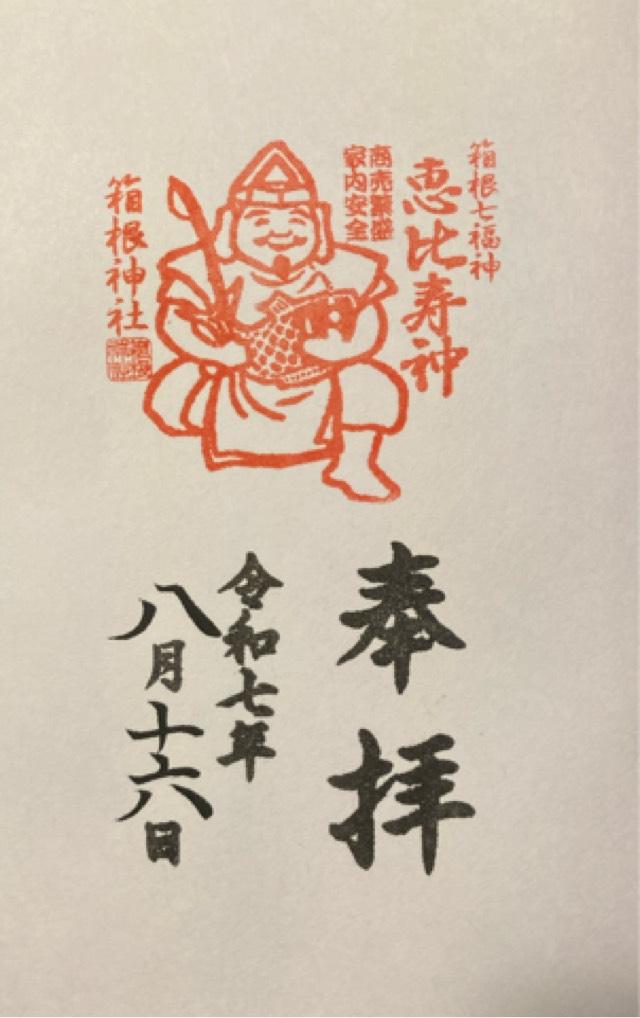 箱根七福神
恵比寿神
商売繁盛
家内安全
箱根神社
奉拝
令和七年
八月十六日